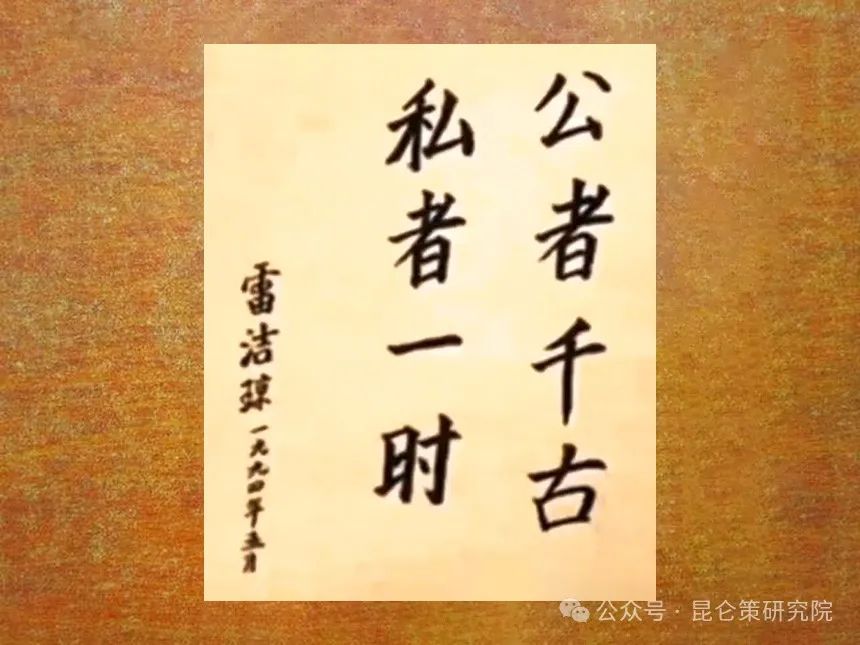 公者千古
私者一时
雷洁琼一九九四年五月
公众号·昆仑策研究院